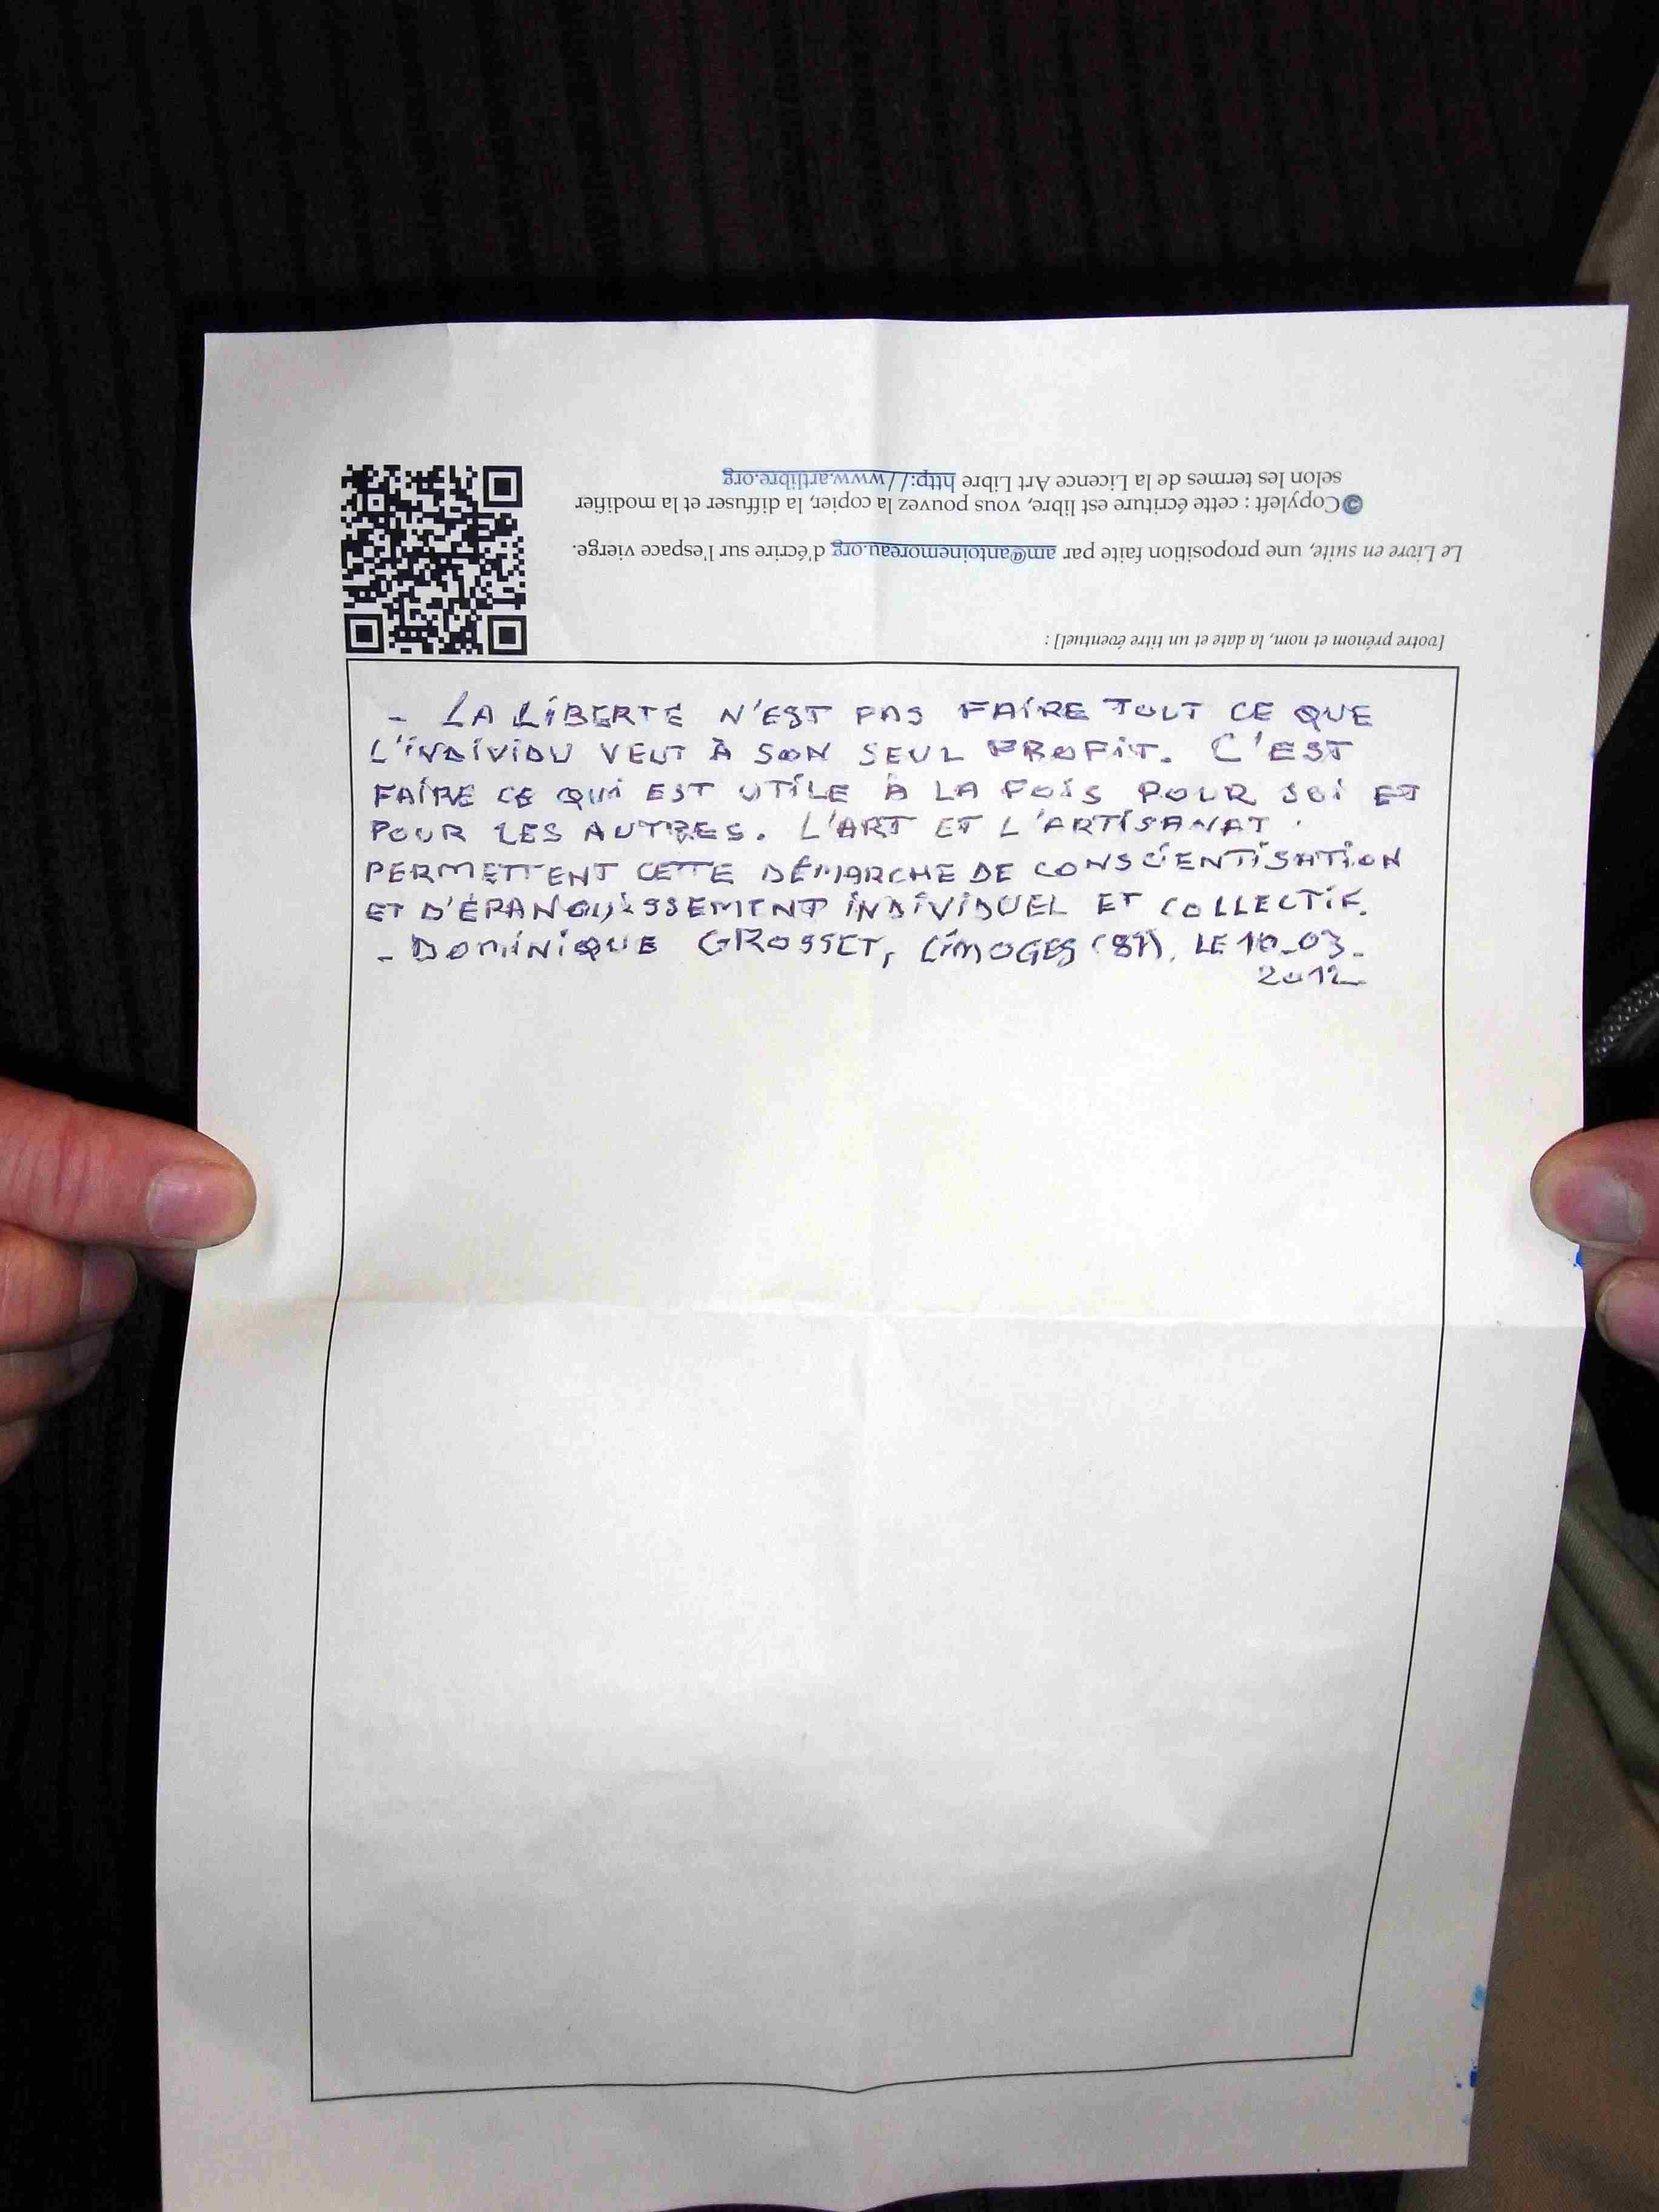 - LA LIBERTÉ N'EST PAS FAIRE TOUT CE QUE
L'INDIVIDU VEUT À SON SEUL PROFIT. C'EST
FAIRE CE QUI EST UTILE À LA FOIS POUR SOI ET
POUR LES AUTRES. L'ART ET L'ARTISANAT
PERMETTENT CETTE DÉMARCHE DE CONSCIENTISATION
ET D'ÉPANOUISSEMENT INDIVIDUEL ET COLLECTIF.
- DOMINIQUE GROSSET, LIMOGES (87). LE 10-03-
2012
[votre prénom et nom, la date et un titre éventuel] :
Le Livre en suite, une proposition faite par am@antoinemoreau.org d'écrire sur l'espace vierge.
Copyleft : cette écriture est libre, vous pouvez la copier, la diffuser et la modifier
selon les termes de la Licence Art Libre http://www.artlibre.org